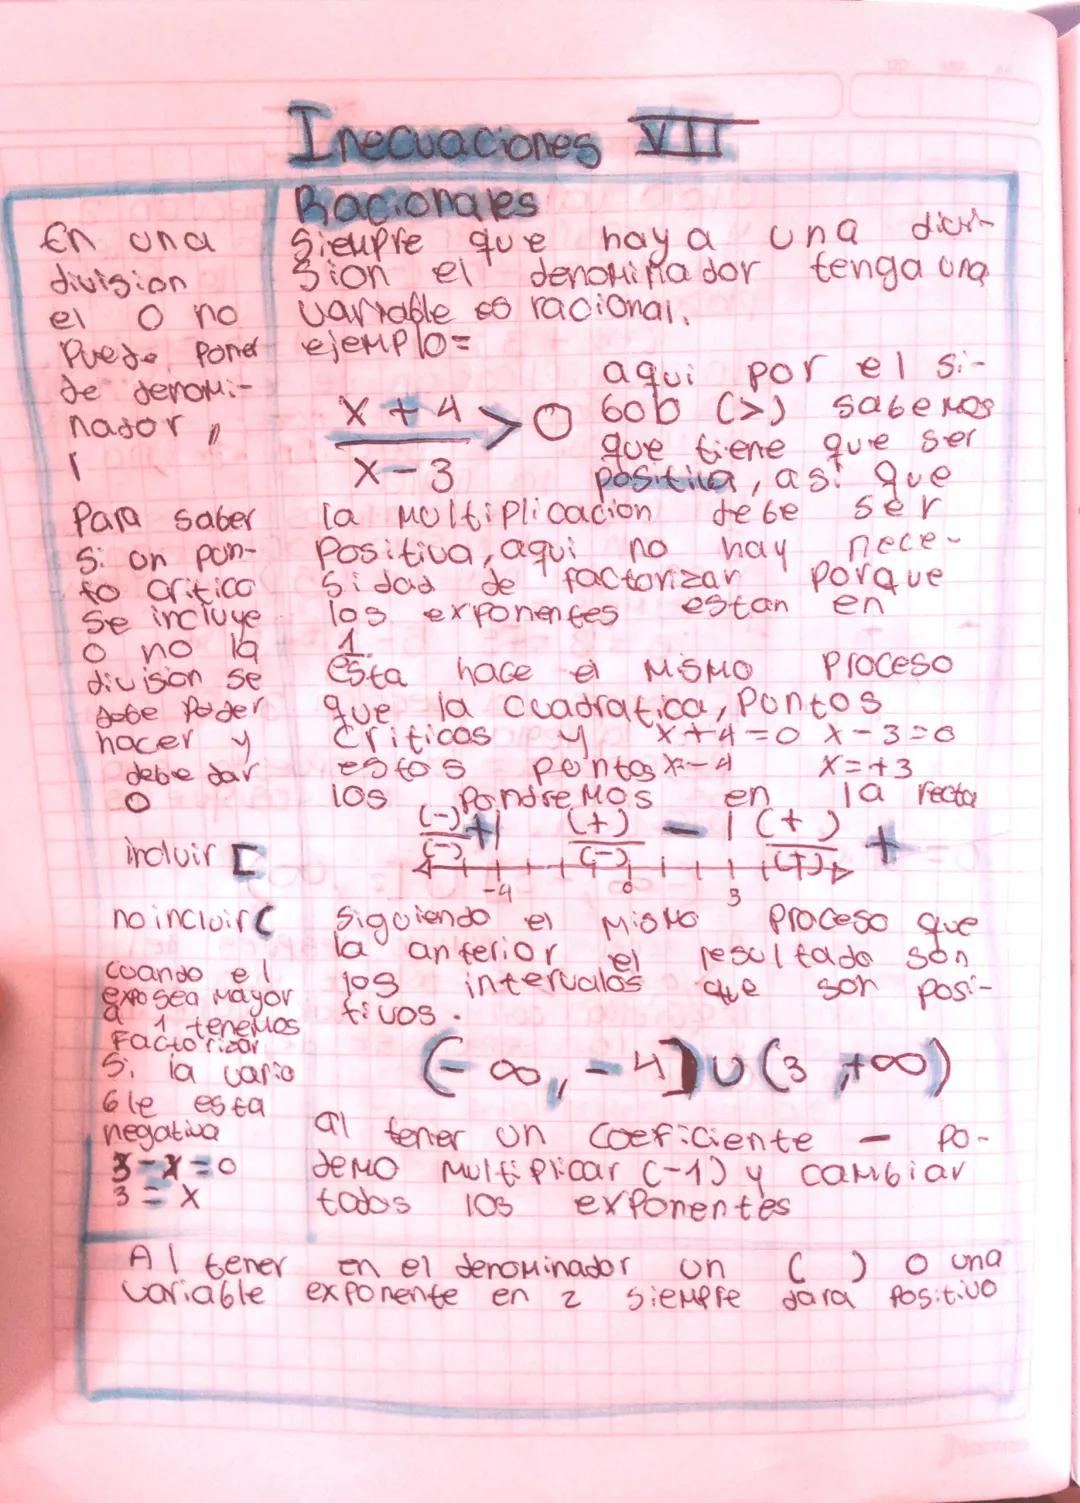 Inecuaciones VII
En una
division
el 0 no
Puede poner
de denomi-
nador,
Para saber
si un pun-
to critico
se incluye
o no la
division se
debe poder
hacer y
debe dar
0
incluir [
no incluir (
cuando el
expo sea mayor
a 1 tenemos
Factorizar
Si la varia
ble esta
negativa
3-x=0
3=x
Racionales
Siempre que haya una divi-
sion el denominador tenga una
variable es racional.
ejemplo=
x+4
> 0
x-3
aqui por el si-
bob (>) sabemos
que tiene que ser
positiva, asi que
la multiplicacion debe ser
positiva, aqui no hay nece-
sidad de factorizar porque
los exponentes estan en
1.
esta hace el mismo proceso
que la cuadratica, puntos
criticos y x+4=0 x-3=0
estos puntos x=-4 x=+3
los pondremos en la recta
(-) + | (+) - | (+) +
(-) (-) (+)
-4 0 3
siguiendo el mismo proceso que
la anterior el resultado son
los intervalos que son posi-
tivos.
(-∞, -4] ∪ (3, +∞)
al tener un coeficiente - po-
demo multiplicar (-1) y cambiar
todos los exponentes
Al tener en el denominador un ( ) o una
variable exponente en 2 siempre dara positivo